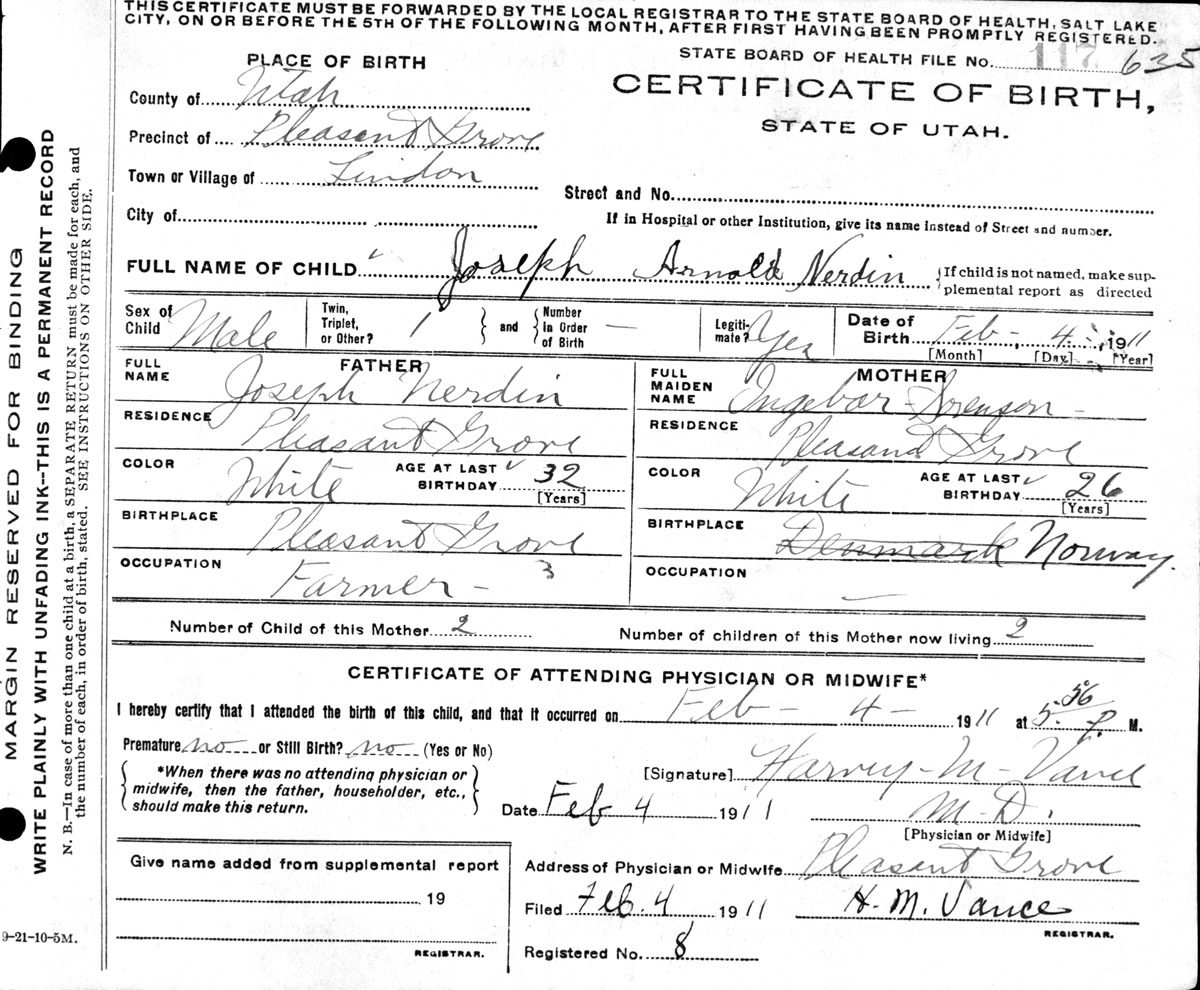 THIS CERTIFICATE MUST BE FORWARDED BY THE LOCAL REGISTRAR TO THE STATE BOARD OF HEALTH, SALT LAKE
CITY, ON OR BEFORE THE 5TH OF THE FOLLOWING MONTH, AFTER FIRST HAVING BEEN PROMPTLY REGISTERED.
STATE BOARD OF HEALTH FILE No. 117 635
CERTIFICATE OF BIRTH,
STATE OF UTAH.
PLACE OF BIRTH
County of Utah
Precinct of Pleasant Grove
Town or Village of Lindon
Street and No.
City of
If in Hospital or other Institution, give its name instead of Street and number.
FULL NAME OF CHILD Joseph Arnold Nerdin
If child is not named, make sup-
plemental report as directed
Sex of Child Male
Twin, Triplet, or Other? 1
and
Number in Order of Birth —
Legiti-mate? Yes
Date of Birth Feb - 4 - 1911
[Month] [Day] [Year]
FATHER
FULL NAME Joseph Nerdin
RESIDENCE Pleasant Grove
COLOR White AGE AT LAST BIRTHDAY 32
[Years]
BIRTHPLACE Pleasant Grove
OCCUPATION Farmer - 3
MOTHER
FULL MAIDEN NAME Ingebar Sorenson -
RESIDENCE Pleasant Grove
COLOR White AGE AT LAST BIRTHDAY 26
[Years]
BIRTHPLACE Denmark Norway.
OCCUPATION —
Number of Child of this Mother 2
Number of children of this Mother now living 2
CERTIFICATE OF ATTENDING PHYSICIAN OR MIDWIFE*
I hereby certify that I attended the birth of this child, and that it occurred on Feb - 4 - 1911 at 5 56 P. M.
Premature no or Still Birth? no (Yes or No)
*When there was no attending physician or
midwife, then the father, householder, etc.,
should make this return.
[Signature] Harvey - M - Vance
Date Feb 4 1911
M. D.
[Physician or Midwife]
Give name added from supplemental report
19
REGISTRAR.
Address of Physician or Midwife Pleasant Grove
Filed Feb. 4 1911
H. M. Vance
REGISTRAR.
Registered No. 8
9-21-10-5M.
MARGIN RESERVED FOR BINDING
WRITE PLAINLY WITH UNFADING INK--THIS IS A PERMANENT RECORD
N. B.—In case of more than one child at a birth, a SEPARATE RETURN must be made for each, and
the number of each, in order of birth, stated. SEE INSTRUCTIONS ON OTHER SIDE.